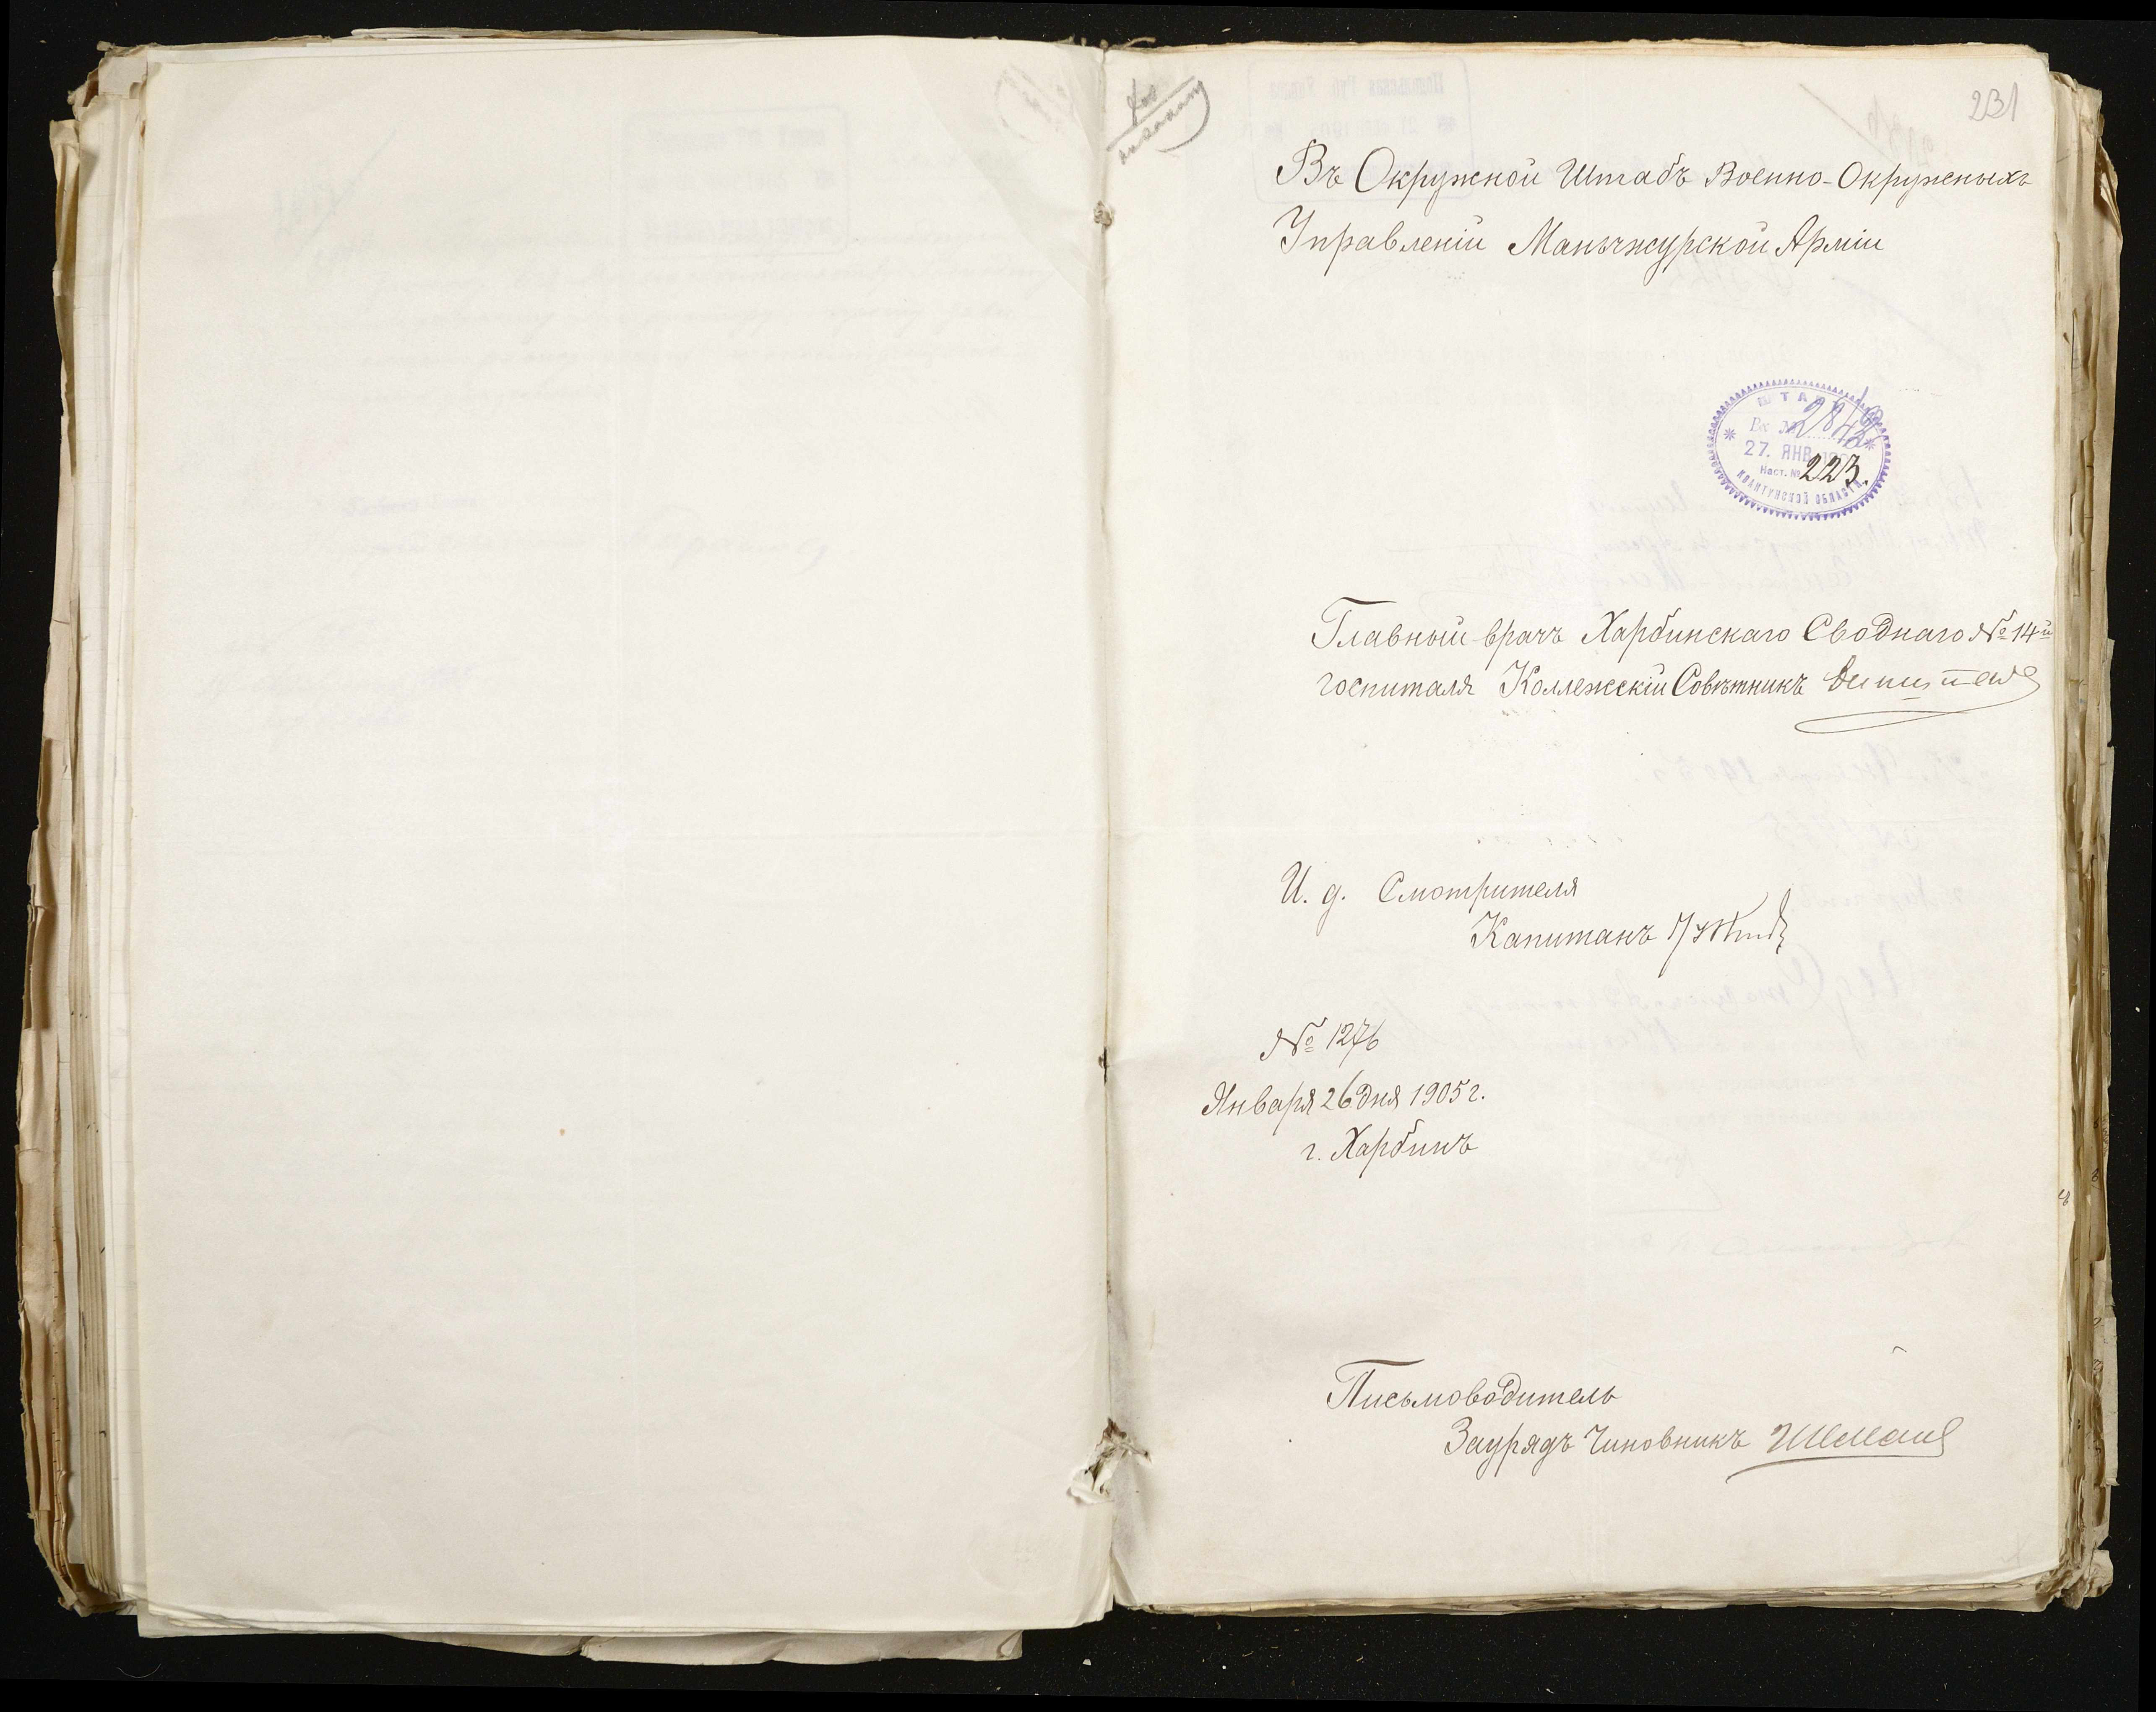 231
Въ Окружной Штабъ Военно-Окружныхъ
Управленій Маньчжурской Арміи
ШТАБ
Вх. № 2848
27. ЯНВ. 190
Наст. № 223.
КВАНТУНСКОЙ ОБЛАСТИ
Главный врачъ Харбинскаго Своднаго № 14й
госпиталя Коллежскій Совѣтникъ
И. д. Смотрителя
Капитанъ
№ 1276
Января 26 дня 1905 г.
г. Харбинъ
Письмоводитель
Заурядъ Чиновникъ